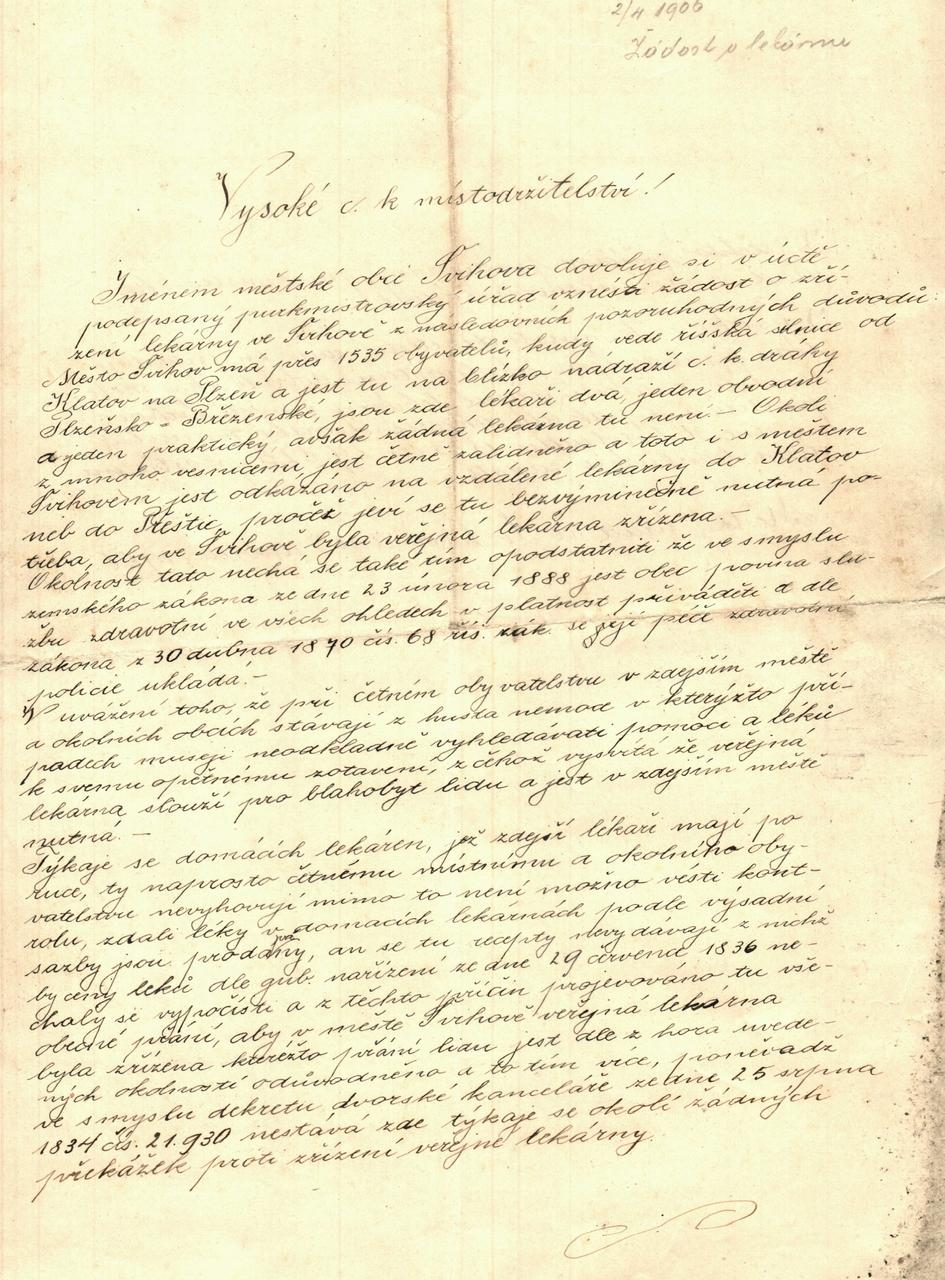 2/4 1906
Žádost o lekárnu
Vysoké c. k místodržitelství!
Jménem městské obce Švihova dovoluje si v úctě
podepsaný purkmistrovský úřad vznésti žádost o zří-
zení lekárny ve Švihově z následovních pozoruhodných důvodů:
Město Švihov má přes 1535 obyvatelů, kudy vede říšská silnice od
Klatov na Plzeň a jest tu na blízko nádraží c. k. dráhy
Plzeňsko-Březenské, jsou zde lékaři dvá, jeden obvodní
a jeden praktický, avšak žádná lekárna tu není. — Okolí
z mnoho vesnicemi jest četně zalidněno a toto i s městem
Švihovem jest odkázáno na vzdálené lekárny do Klatov
neb do Přeštic, pročež jeví se tu bezvýminečně nutná po-
třeba, aby ve Švihově byla veřejná lekárna zřízena. —
Okolnost tato nechá se také tím opodstatniti že ve smyslu
zemského zákona ze dne 23 února 1888 jest obec povina slu-
žbu zdravotní ve všech ohledech v platnost přiváděti a dle
zákona z 30 dubna 1870 čís. 68 říš. zák. se její péči zdravotní
policie ukládá. —
V uvážení toho, že při četném obyvatelstvu v zdejším městě
a okolních obcích stávají z husta nemoce v kterýžto pří-
padech musejí neodkladně vyhledávati pomoci a léků
k svemu opětnému zotavení, z čehož vysvítá že veřejná
lekárna slouží pro blahobyt lidu a jest v zdejším městě
nutná. —
Týkaje se domácích lekáren, jež zdejší lékaři mají po
ruce, ty naprosto četnému místnímu a okolního oby-
vatelstvu nevyhovují mimo to není možno vesti kont-
rolu, zdali léky v domacích lekárnách podle výsadní
sazby jsou prodány, an se tu recepty nevydávají z nichž
by ceny leků dle gub. nařízení ze dne 29 července 1836 ne-
chaly se vypočísti a z těchto příčin projevováno tu vše-
obecné přání, aby v městě Švihově veřejná lekárna
byla zřízena kteréžto přání lidu jest dle z hora uvede-
ných okolností odůvodněno a to tím více, poněvadž
ve smyslu dekretu dvorské kanceláře ze dne 25 srpna
1834 čís. 21.930 nestává zde týkaje se okolí žádných
překážek proti zřízení veřejné lekárny.